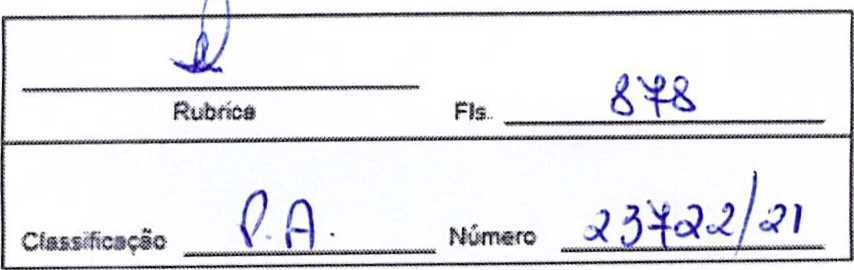 Rubrica Fls. 878
Classificação P.A. Número 23722/21